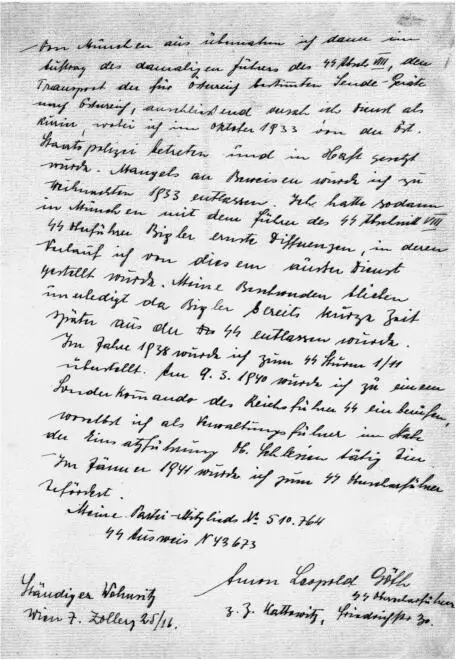 Von München aus übernahm ich dann im
Auftrag des damaligen Führers des SS Absch. VIII, den
Transport der für Österreich bestimten Sende-Geräte
nach Österreich, anschließend versah ich Dienst als
Kurier, wobei ich im Oktober 1933 von der Öst.
Staatspolizei betreten und in Haft gesetzt
wurde. Mangels an Beweisen wurde ich zu
Weihnachten 1933 entlassen. Ich hatte sodann
in München mit dem Führer des SS Abschnitt VIII
SS Oberführer Bigler ernste Differenzen, in deren
Verlauf ich von diesem außer Dienst
gestellt wurde. Meine Beschwerden blieben
unerledigt da Bigler bereits kurze Zeit
später aus der SS entlassen wurde.
Im Jahre 1938 wurde ich zum SS Sturm 1/11
überstellt. Am 9.3.1940 wurde ich zu einem
Sonderkomando des Reichsführer SS einberufen,
woselbst ich als Verwaltungsführer im Stabe
der Einsatzführung Ob. Schlesien tätig bin
Im Jänner 1941 wurde ich zum SS Oberscharführer
befördert.
Meine Partei-Mitglieds No. 510.764
SS Ausweis N 43673
Amon Leopold Göth
SS Oberscharführer
Ständiger Wohnsitz
Wien 7. Zollerg 25/16.
z. Z. Kattowitz, Friedrichstr 30.